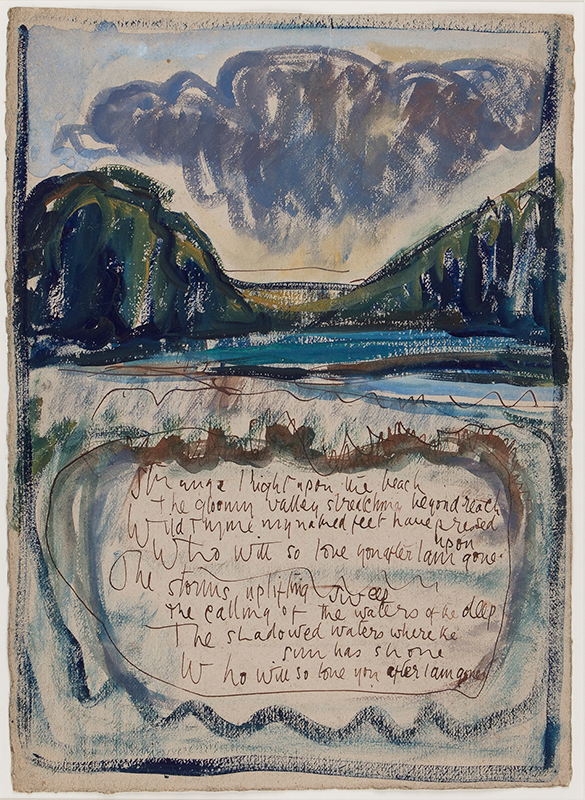 Strange light upon the beach
The gloomy valley stretching beyond reach
Wild thyme my naked feet have pressed
upon
Who will so love you after I am gone.
The storms uplifting sweep
The calling of the waters of the deep
The shadowed waters where the
sun has shone
Who will so love you after I am gone